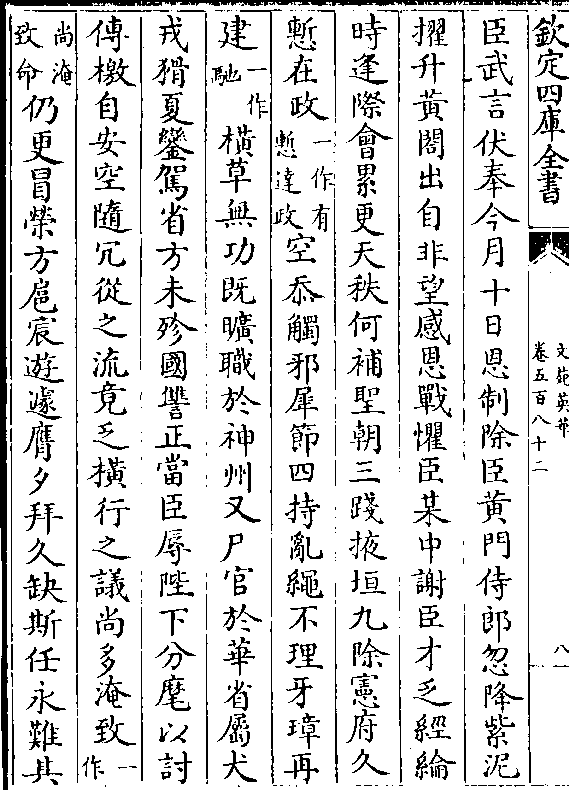 欽定四庫全書
文苑英華
卷五百八十二
八
臣武言伏奉今月十日恩制除臣黄門侍郎忽降紫泥
擢升黄閤出自非望感恩戰懼臣某中謝臣才乏經綸
時逢際會累更天秩何補聖朝三踐掖垣九除憲府久
慙在政一作有慙達政空忝觸邪犀節四持亂繩不理牙璋再
建一作馳橫草無功既曠職於神州又尸官於華省屬犬
戎猾夏鑾駕省方未殄國讐正當臣辱陛下分麾以討
傳檄自安空隨冗從之流竟乏橫行之議尚多淹致一作
尚淹致命仍更冒榮方扈宸遊遽膺夕拜久缺斯任永難其